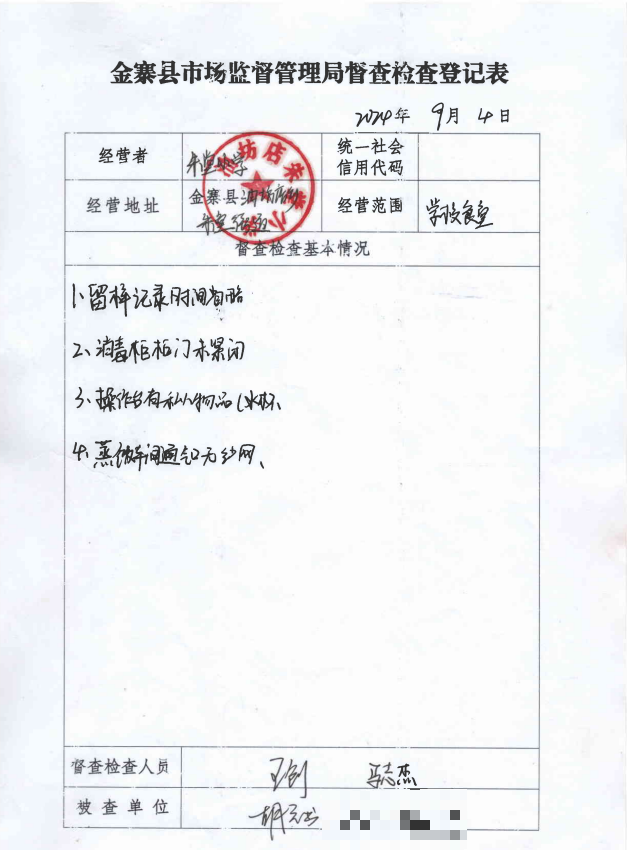 金寨县市场监督管理局督查检查登记表
2024年 9月 4日
经营者 朱堂小学 统一社会信用代码
经营地址 金寨县油坊店乡 经营范围 学校食堂
朱堂
督查检查基本情况
1、留样记录时间省略
2、消毒柜柜门未紧闭
3、操作台有私人物品(水杯、
4、蒸饭车间通气口无纱网、
督查检查人员 王创 马志杰
被查单位 胡